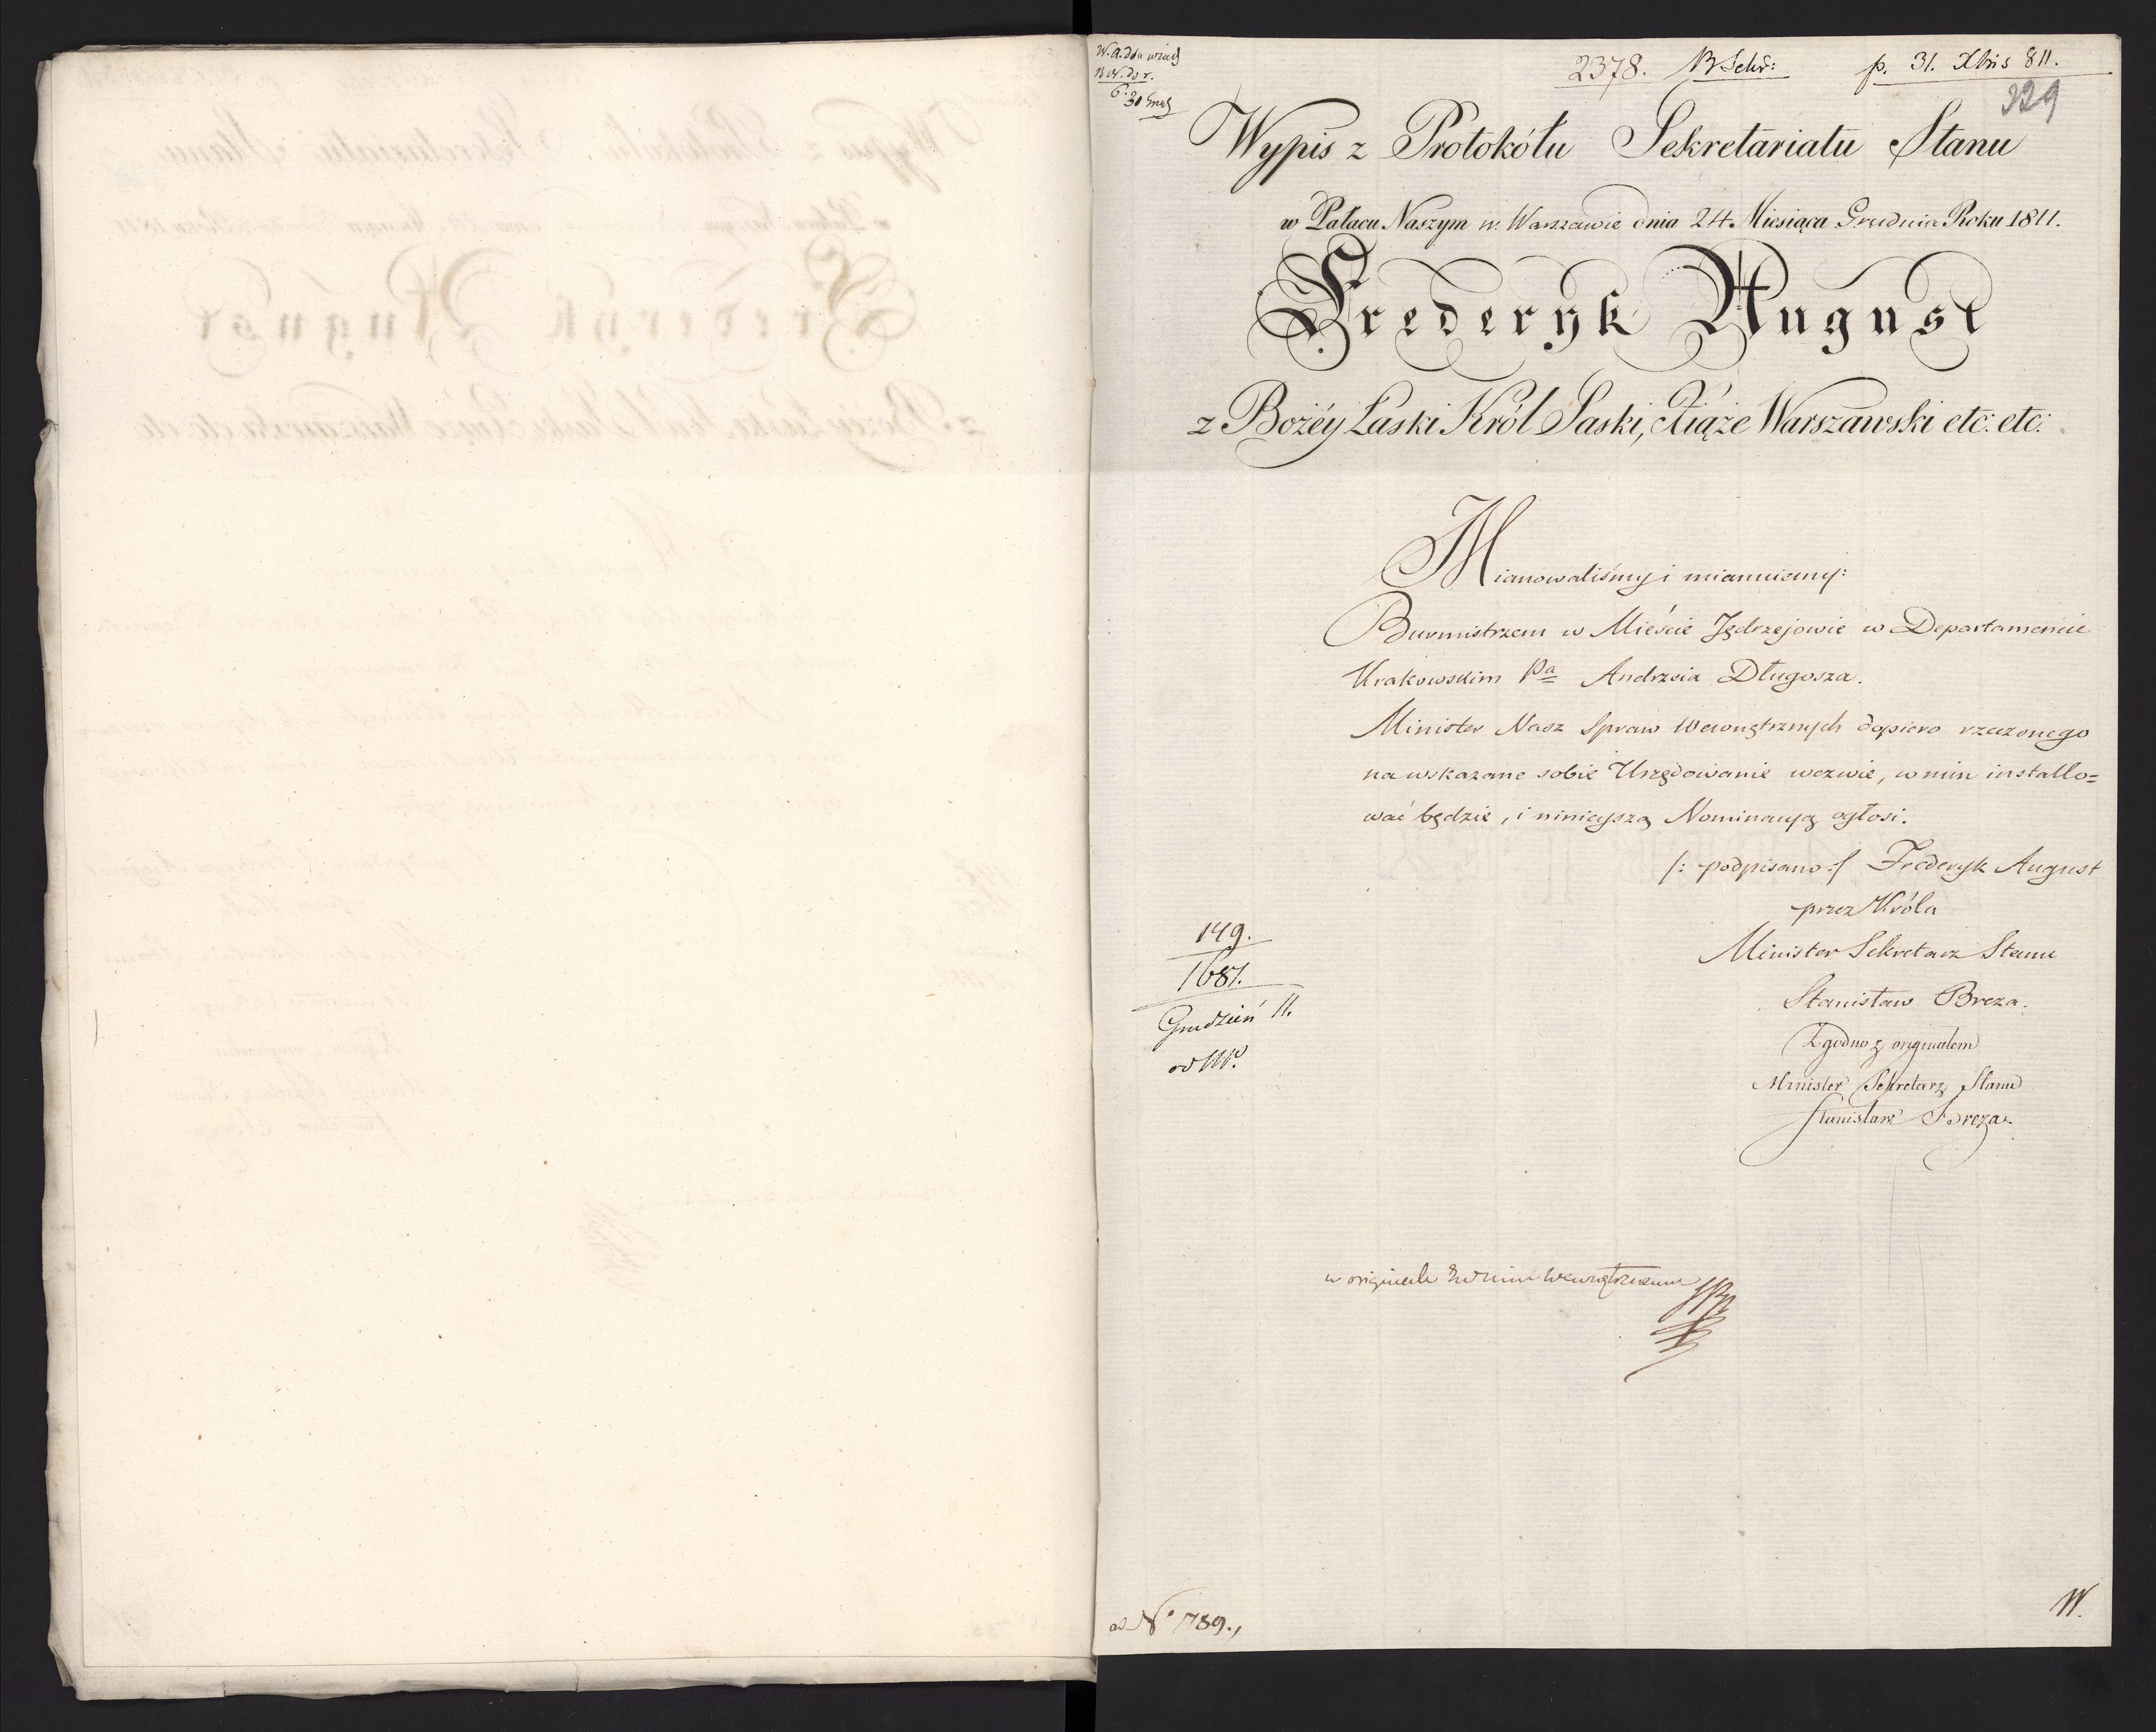 2378. p. 31. Xbris 811.
329
6. 30
Wypis z Protokółu Sekretariatu Stanu
w Pałacu Naszym w Warszawie dnia 24 Miesiąca Grudnia Roku 1811.
Frederyk August
z Bożéy Łaski Król Saski, Xiąże Warszawski etc: etc:
Mianowaliśmy i mianuiemy:
Burmistrzem w Mieście Jędrzejowie w Departamencie
Krakowskim Pa Andrzeia Długosza.
Minister Nasz Spraw Wewnętrznych dopiero rzeczonego
na wskazane sobie Urzędowanie wezwie, w nim installo=
wać będzie, i ninieyszą Nominacyą ogłosi.
/: podpisano :/ Frederyk August
przez Króla
Minister Sekretarz Stanu
Stanisław Breza.
Zgodno z originałem
Minister Sekretarz Stanu
Stanisław Breza
149.
1681.
Grudzień 11.
w originale
ad No 1789.,
W.